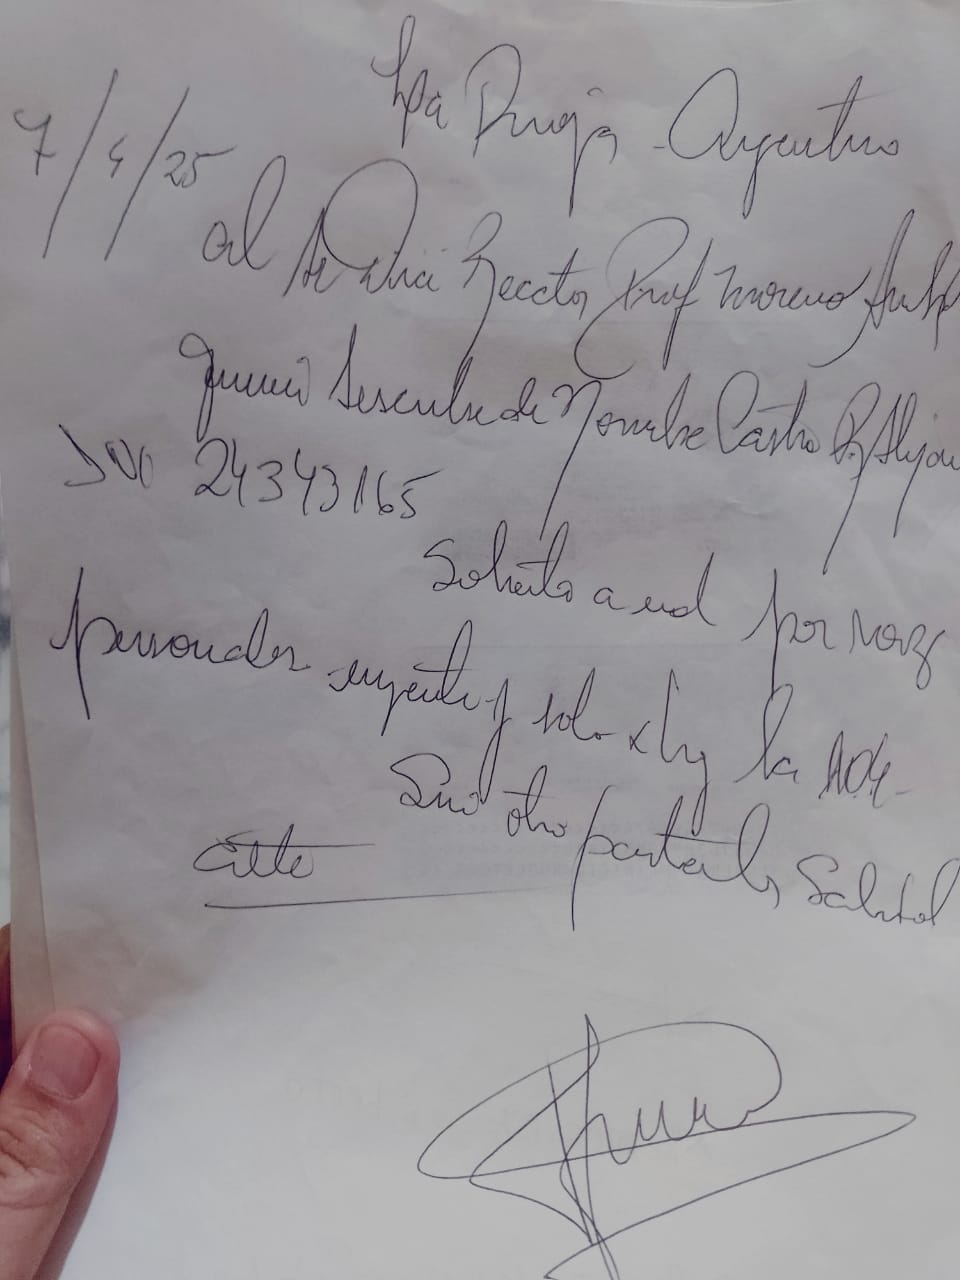 La Rioja - Argentina
7/4/25
al Sr Vice Rector Prof Moreno
quien suscribe de Nombre Castro R. Alejan
DNI 24343165
Solicito a ud por
personales urgente y solo x hoy la
Sin otro particular Saluda
Atte